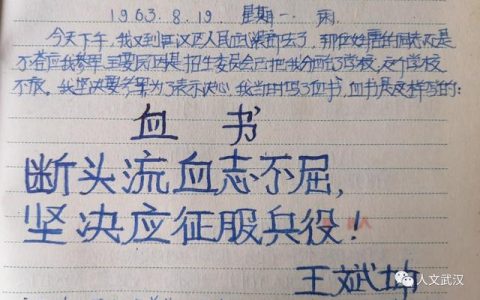 1963.8.19. 星期一. 雨
今天下午，我又到江汉区人民武装部去了，那位姓唐的同志还是
不答应我参军，主要原因是招生委员会已把我分配了学校，这个学校
不放。我坚决要参军，为了表示决心，我当时写了血书，血书是这样写的：
血 书
断头流血志不屈，
坚决应征服兵役！
王斌坤
人文武汉